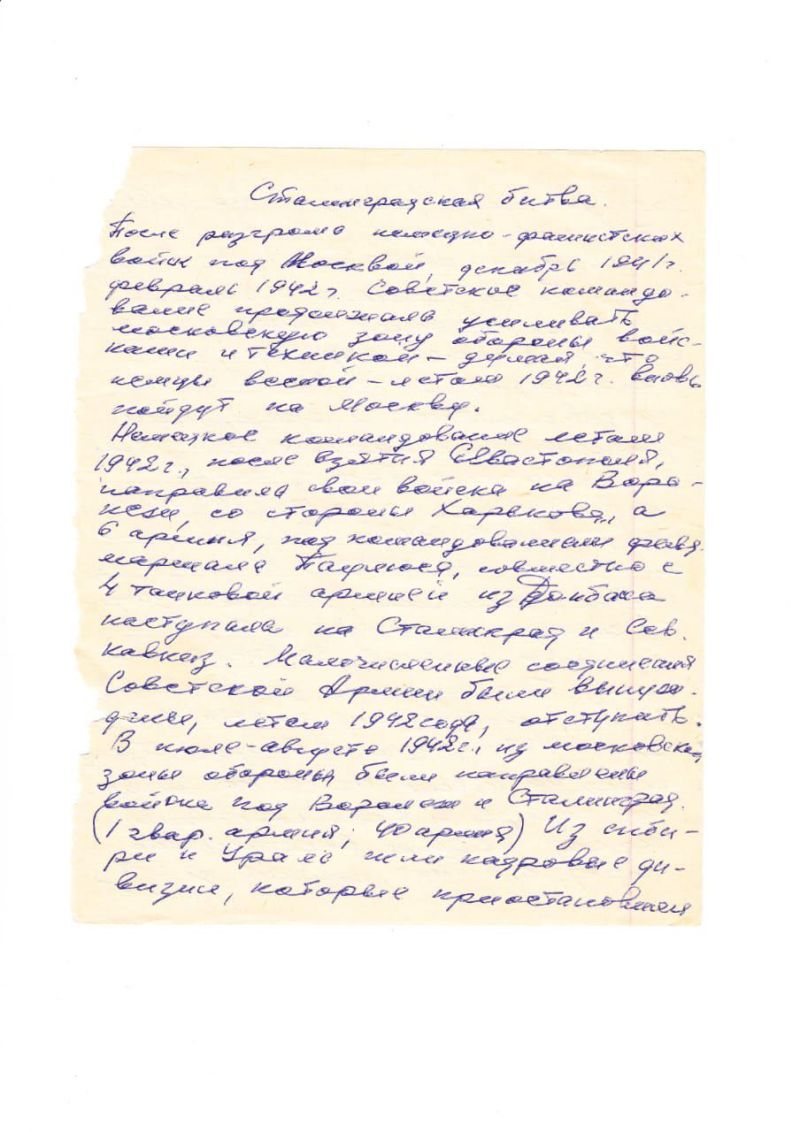 Сталинградская битва.
После разгрома немецко-фашистских
войск под Москвой, декабрь 1941г.
февраль 1942г. Советское командо-
вание продолжала усиливать
московскую зону обороны войс-
ками и техникой – думая, что
немцы весной – летом 1942г. вновь
пойдут на Москву.
Немецкое командование летом
1942г., после взятия Севастополя,
направила свои войска на Воро-
неж, со стороны Харькова, а
6 армия, под командованием фельд.
маршала Паулюса, совместно с
4 танковой армией из Донбаса
наступала на Сталинград и Сев.
Кавказ. Малочисленные соединения
Советской Армии были вынуж-
дены, летом 1942 года, отступать.
В июле-августе 1942г., из московской
зоны обороны были направлены
войска под Воронеж и Сталинград.
(1 гвар. армия; 40 армия) Из сиби-
ри и Урала шли кадровые ди-
визии, которые приостановили